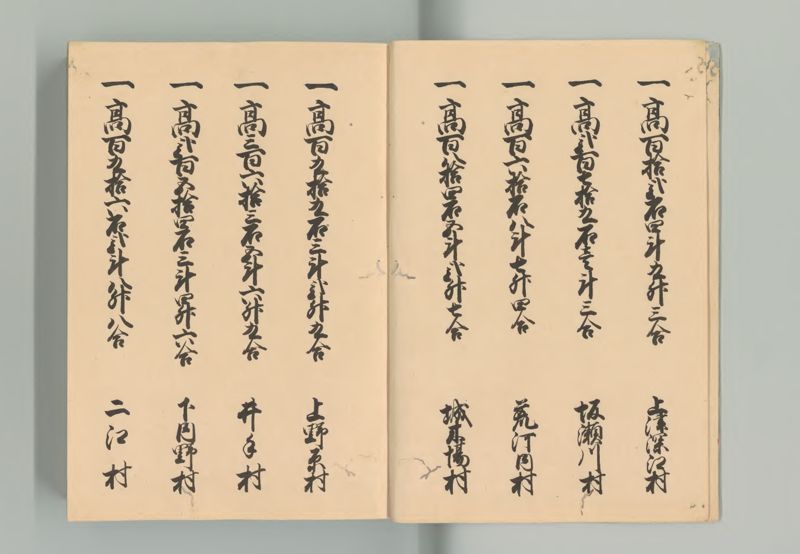 一高百拾弐石四斗九升三合 上津深江村
一高弐百七拾九石壱斗三合 坂瀬川村
一高百六拾石八斗七升四合 荒河内村
一高百八拾四石五斗弐升七合 城木場村
一高百九拾九石三斗弐升九合 上野原村
一高三百六拾三石五斗六升九合 井手村
一高弐百五拾四石三斗四升六合 下内野村
一高百九拾六石弐斗八升八合 二江村